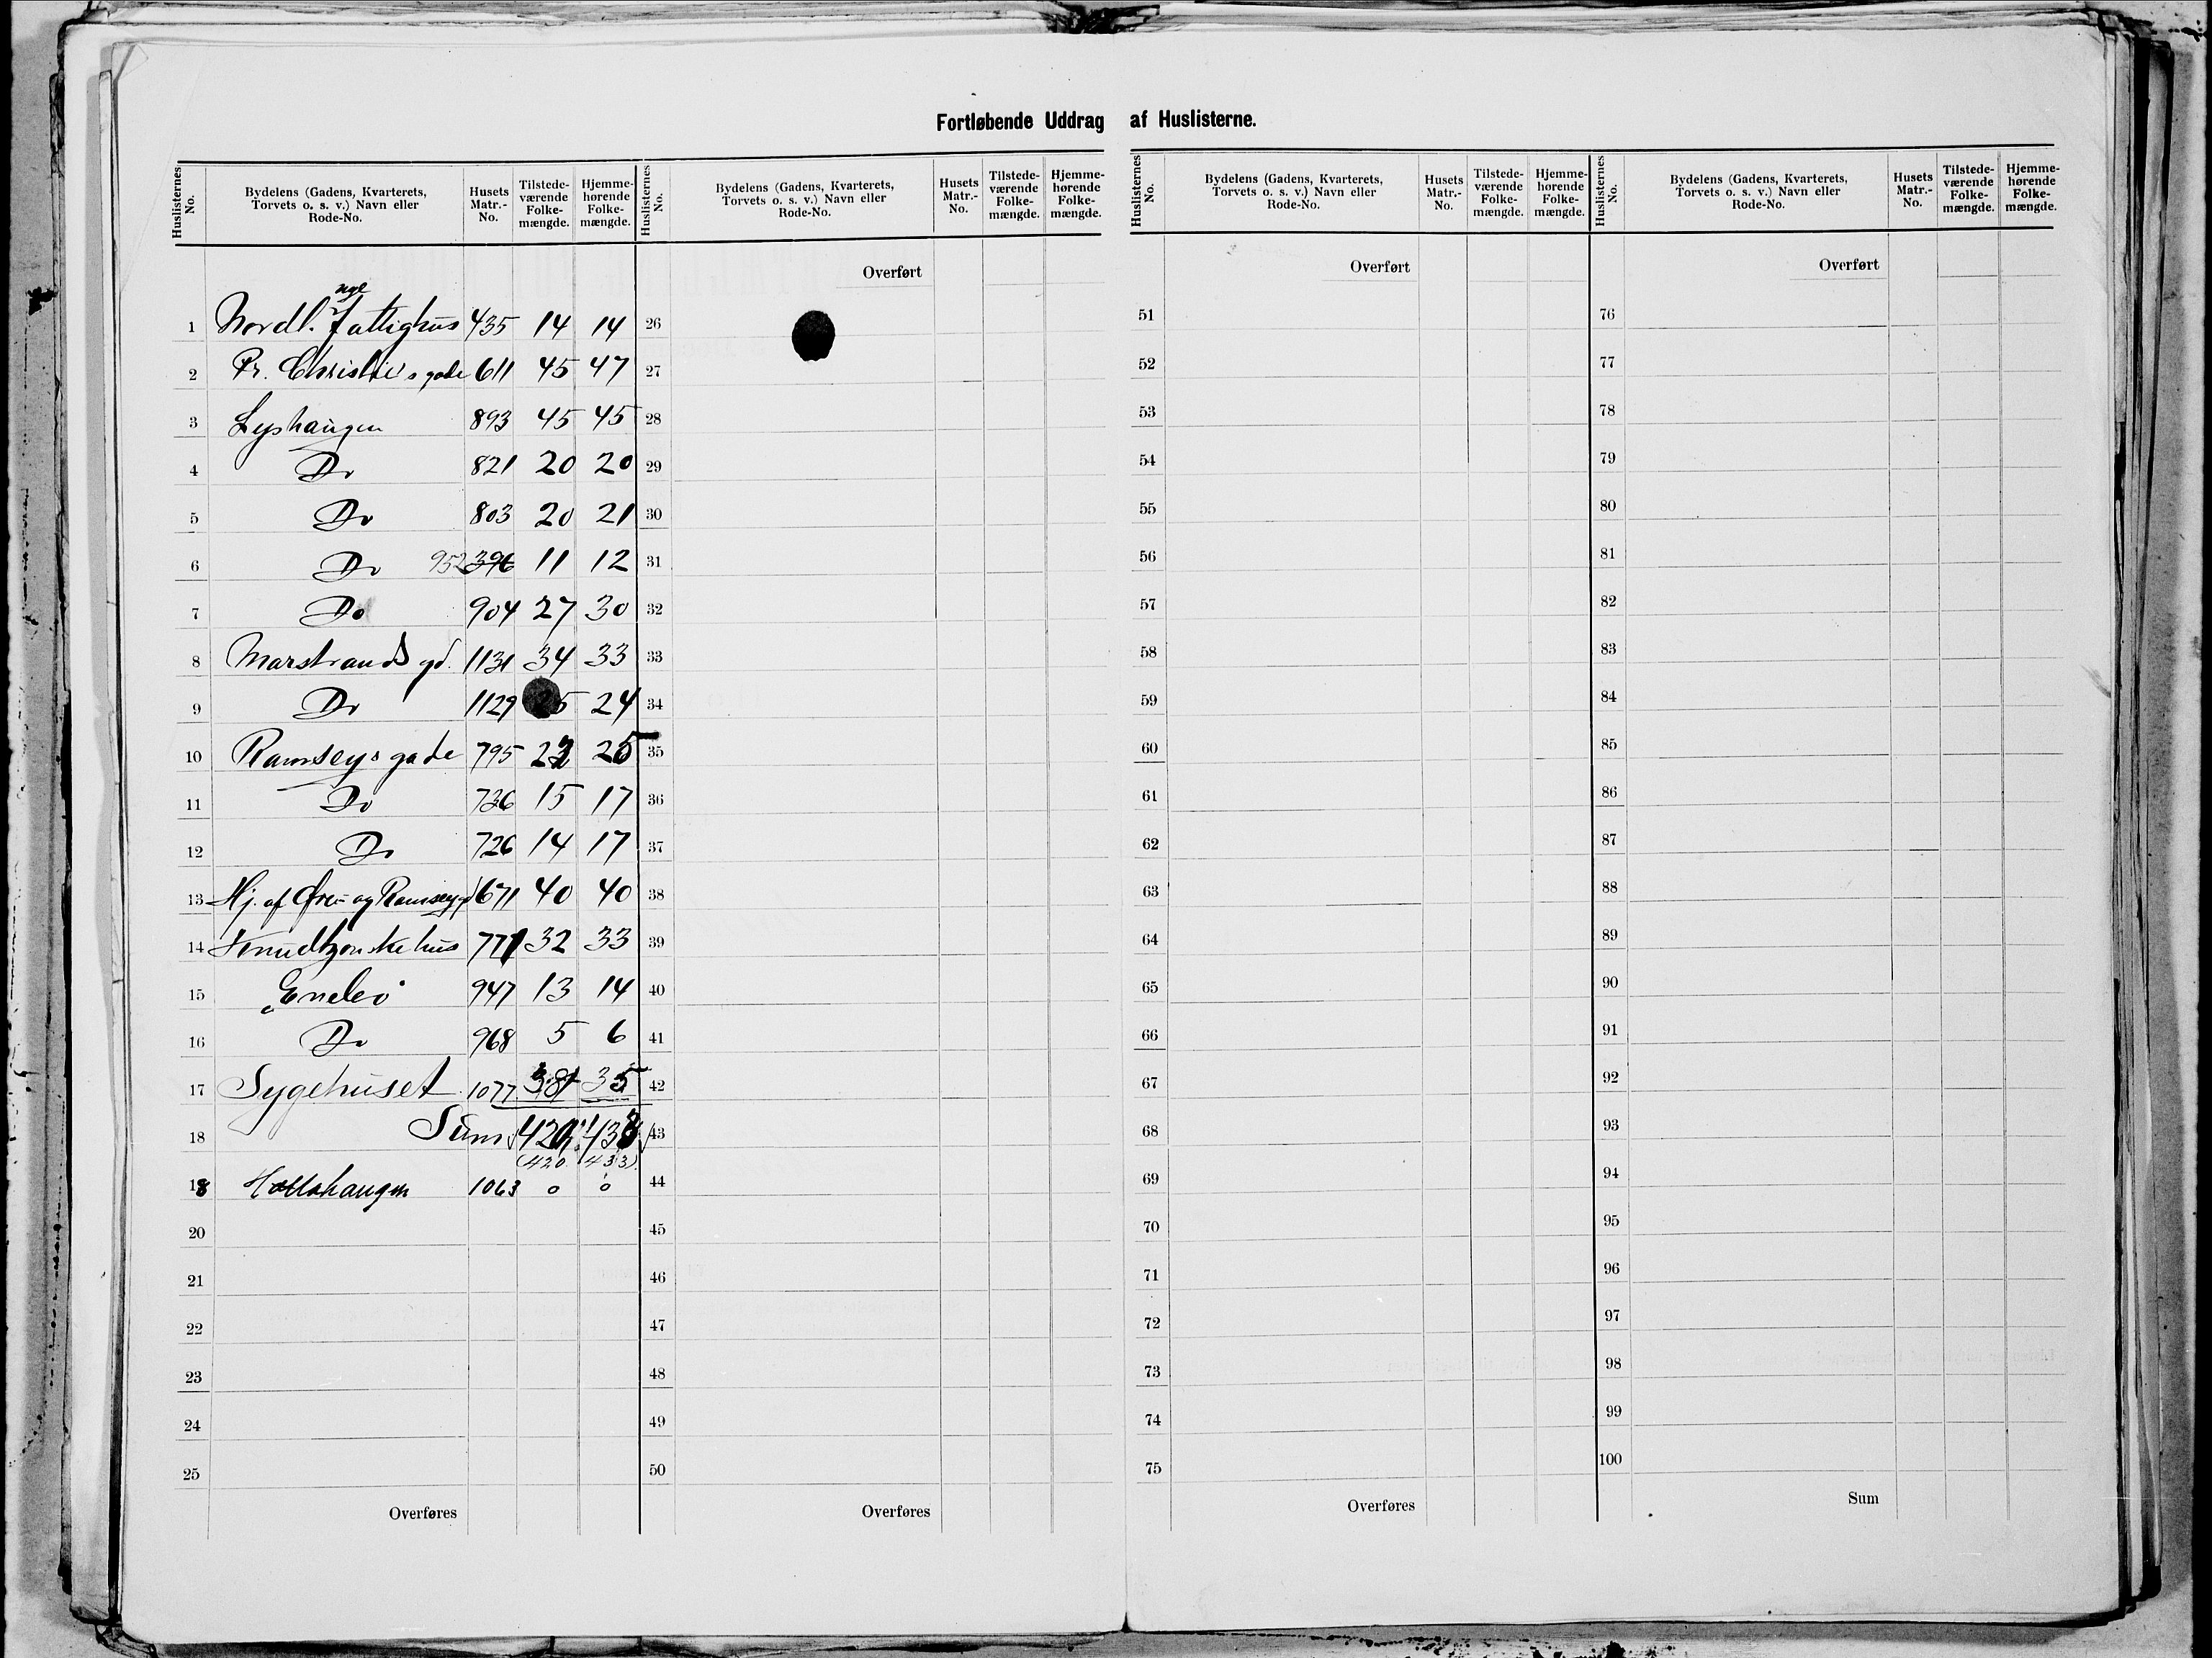 Fortløbende Uddrag af Huslisterne.
Huslisternes No. | Bydelens (Gadens, Kvarterets, Torvets o. s. v.) Navn eller Rode-No. | Husets Matr.-No. | Tilstede-værende Folke-mængde. | Hjemme-hørende Folke-mængde.
Huslisternes No. | Bydelens (Gadens, Kvarterets, Torvets o. s. v.) Navn eller Rode-No. | Husets Matr.-No. | Tilstede-værende Folke-mængde. | Hjemme-hørende Folke-mængde.
Huslisternes No. | Bydelens (Gadens, Kvarterets, Torvets o. s. v.) Navn eller Rode-No. | Husets Matr.-No. | Tilstede-værende Folke-mængde. | Hjemme-hørende Folke-mængde.
Huslisternes No. | Bydelens (Gadens, Kvarterets, Torvets o. s. v.) Navn eller Rode-No. | Husets Matr.-No. | Tilstede-værende Folke-mængde. | Hjemme-hørende Folke-mængde.
nye
1 Nordl. Fattighus 435 14 14
2 Pr. Christie's gade 611 45 47
3 Lyshaugen 893 45 45
4 Do 821 20 20
5 Do 803 20 21
6 Do 952 396 11 12
7 Do 904 27 30
8 Marstrands gd. 1131 34 33
9 Do 1129 5 24
10 Ramseys gade 795 25
11 Do 736 15 17
12 Do 726 14 17
13 Hj. af Øvre- og Ramseyg 671 40 40
14 Knudtzonske hus 771 32 33
15 „Enelio" 947 13 14
16 Do 968 5 6
17 Sygehuset 1077 38 35
18 Sum
(420 433)
18 Hollohaugen 1063 0 0
20
21
22
23
24
25
Overføres
Overført
26
27
28
29
30
31
32
33
34
35
36
37
38
39
40
41
42
43
44
45
46
47
48
49
50
Overføres
Overført
51
52
53
54
55
56
57
58
59
60
61
62
63
64
65
66
67
68
69
70
71
72
73
74
75
Overføres
Overført
76
77
78
79
80
81
82
83
84
85
86
87
88
89
90
91
92
93
94
95
96
97
98
99
100
Sum